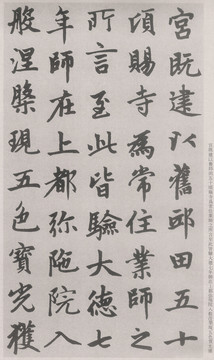 宮既建以舊邸田五十
頃賜寺為常住業師之
所言至此皆驗大德七
年師在上都彌陁院入
般涅槃現五色寶光獲